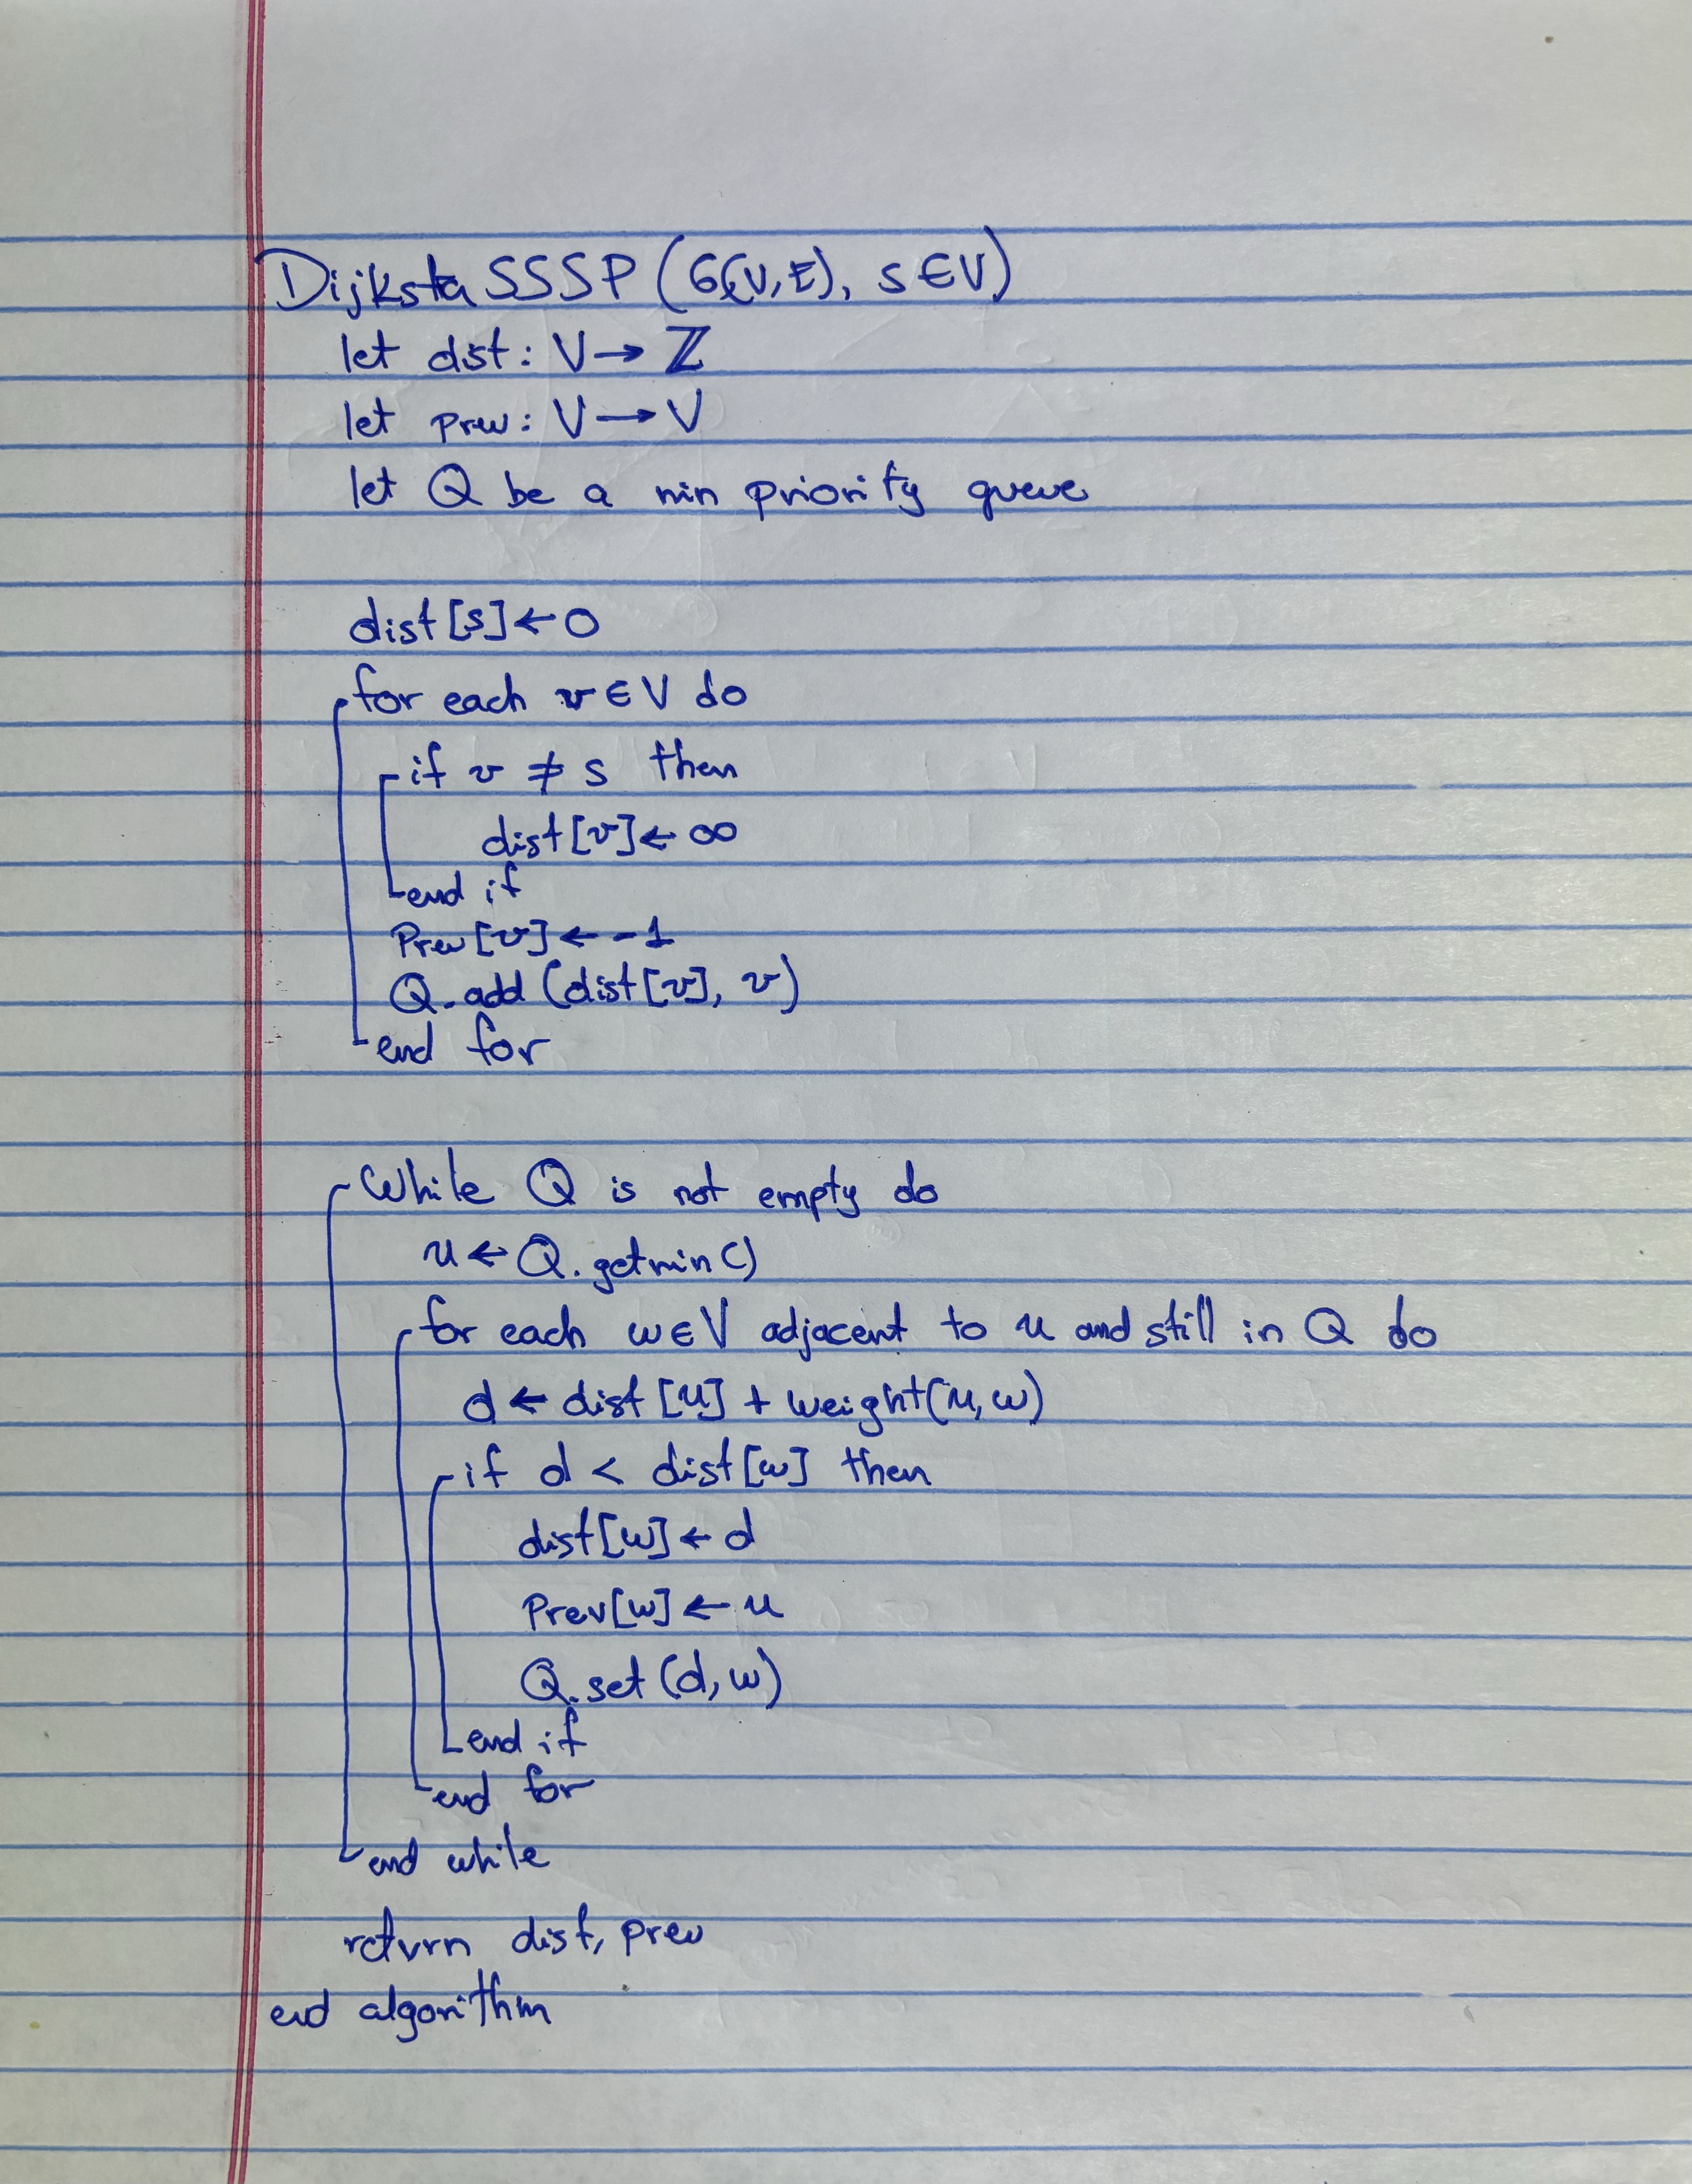 Dijksta SSSP (G(V,E), s∈V)
let dist: V→ℤ
let prev: V→V
let Q be a min priority queue
dist[s]←0
for each v∈V do
if v ≠ s then
dist[v]←∞
end if
Prev[v]←-1
Q.add(dist[v], v)
end for
While Q is not empty do
u←Q.getmin()
for each w∈V adjacent to u and still in Q do
d←dist[u]+weight(u,w)
if d < dist[w] then
dist[w]←d
Prev[w]←u
Q.set(d,w)
end if
end for
end while
return dist, prev
end algorithm